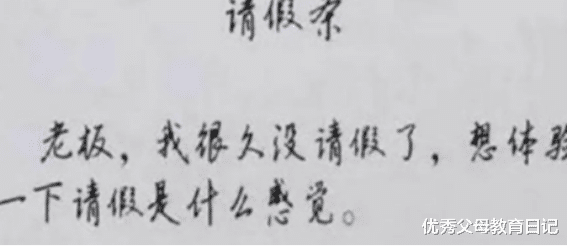 请假条
老板，我很久没请假了，想体验
一下请假是什么感觉。
优秀父母教育日记